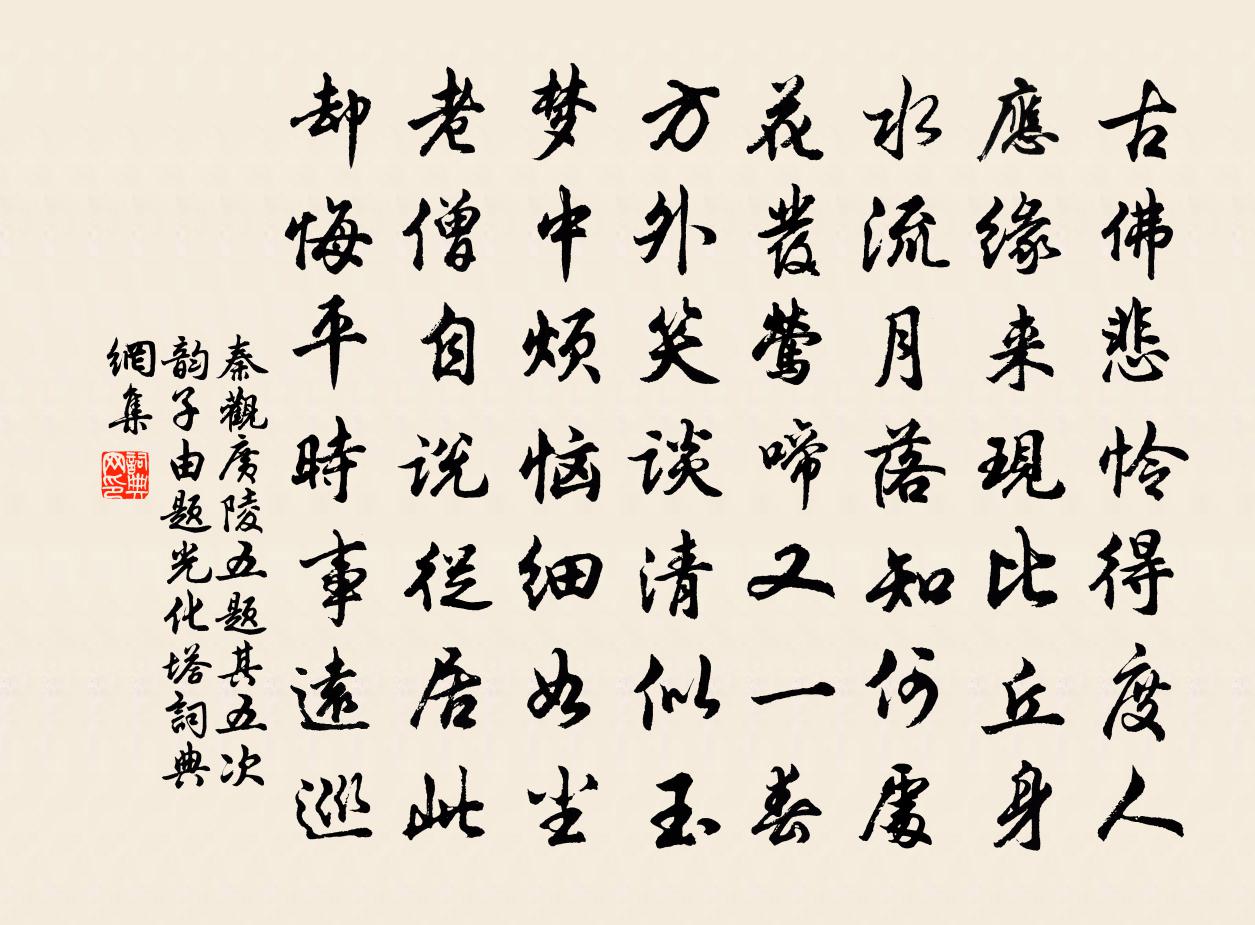 古佛悲怜得度人
應缘来現比丘身
水流月落知何處
花發鶯啼又一春
方外笑談清似玉
梦中烦恼细如尘
老僧自说從居此
却悔平時事遠巡
秦觀广陵五题其五次
韵子由题光化塔詞典
網集
詞典网